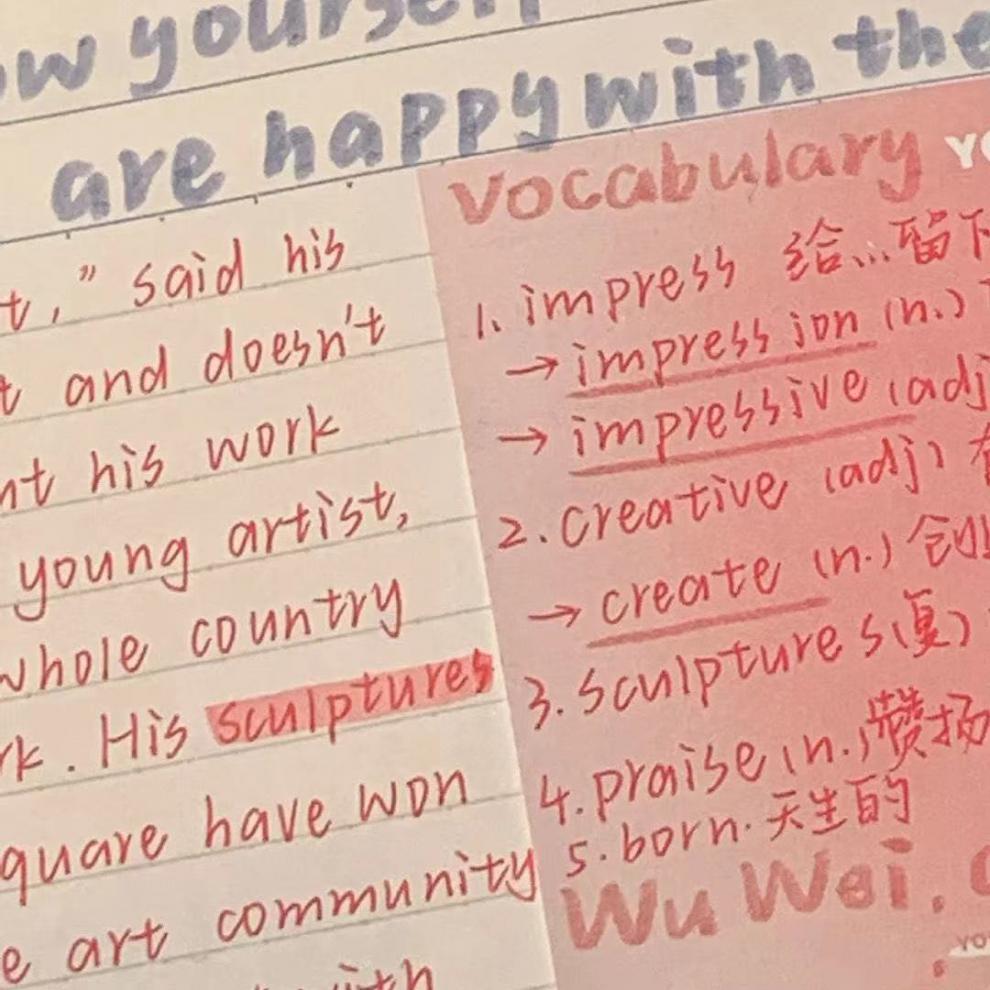 yourself
are happy with the
t," said his
and doesn't
his work
young artist,
whole country
. His sculptures
quare have won
art community
with
Vocabulary
1. impress 给...留下
→ impression (n.)
→ impressive (adj
2. creative (adj)
→ create (n.) 创
3. sculptures (复)
4. praise (n.) 赞扬
5. born. 天生的
Wu Wei.